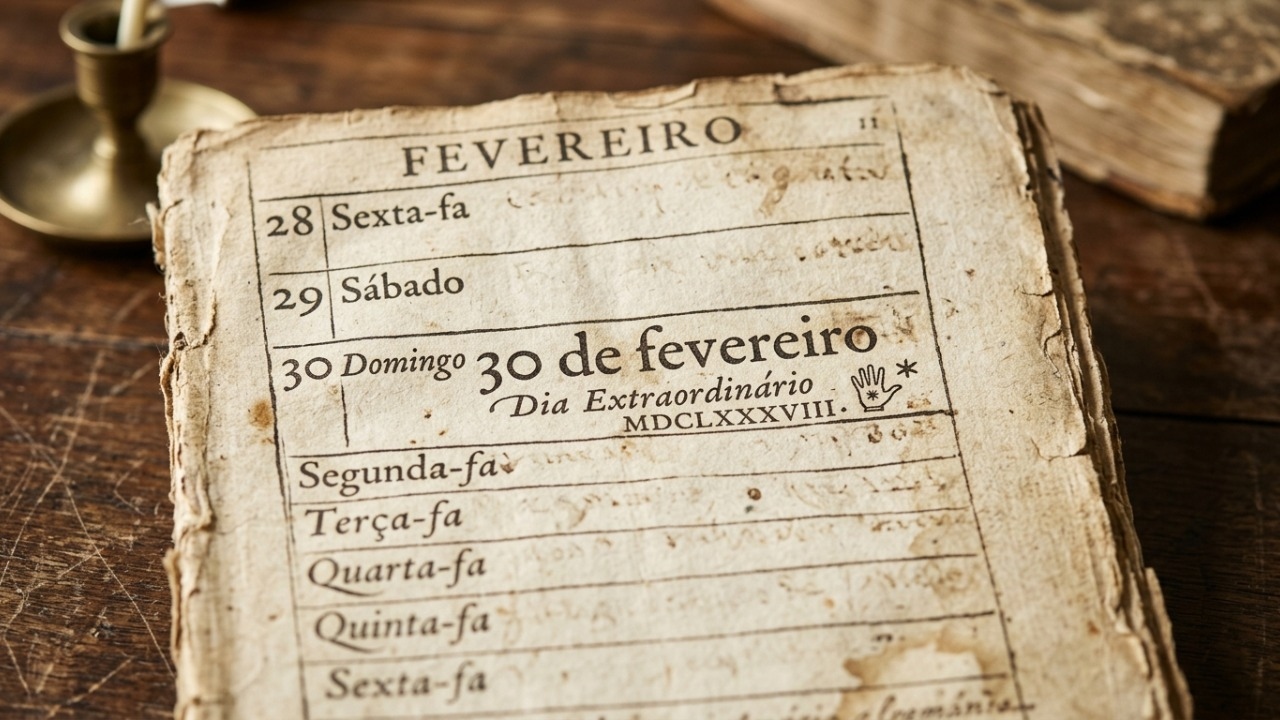 FEVEREIRO 11
28 Sexta-fa
29 Sábado
30 Domingo 30 de fevereiro
Dia Extraordinário
MDCLXXXVIII. *
Segunda-fa
Terça-fa
Quarta-fa
Quinta-fa
Sexta-fa